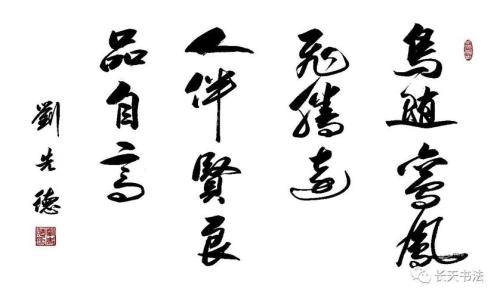 鳥隨鸞鳳
飛騰遠
人伴賢良
品自高
劉先德
长天书法